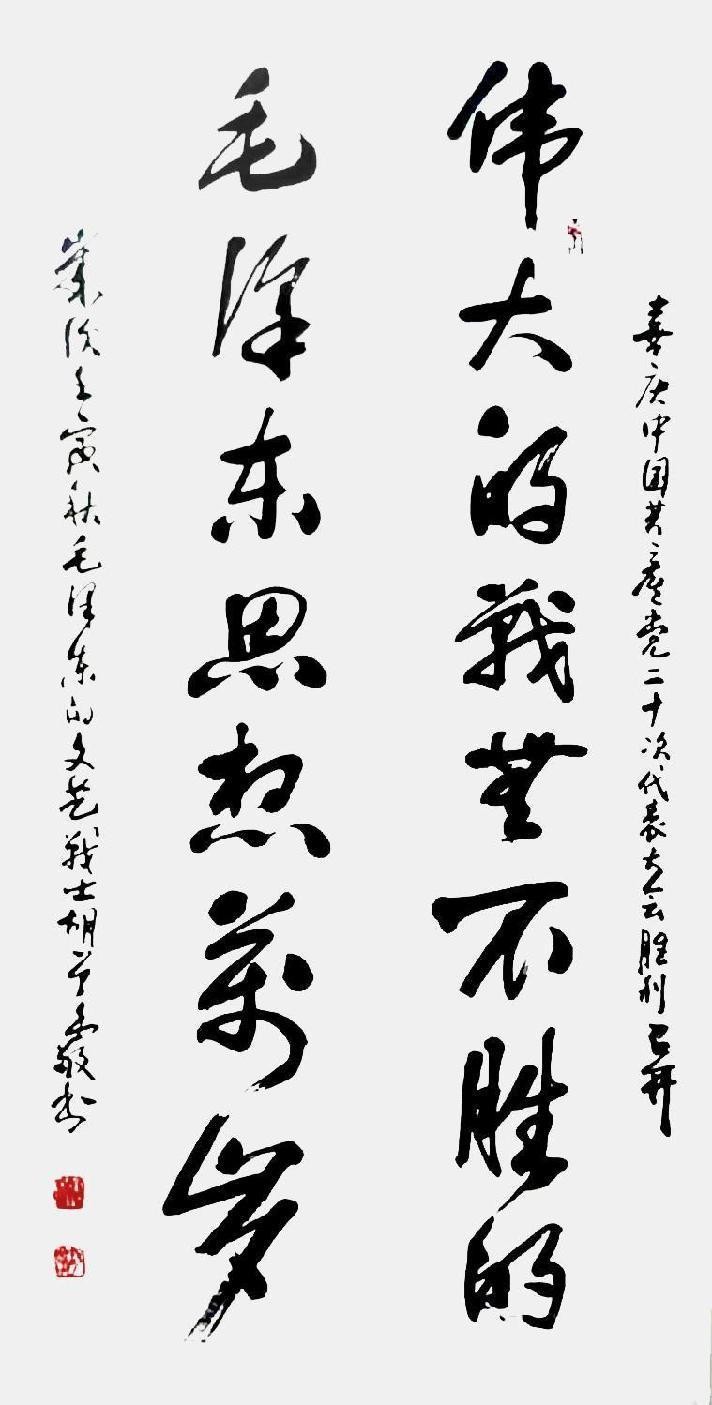 喜庆中国共产党二十次代表大会胜利召开
伟大的戰無不胜的
毛泽东思想萬岁
岁次壬寅秋毛泽东的文艺战士胡
敬书